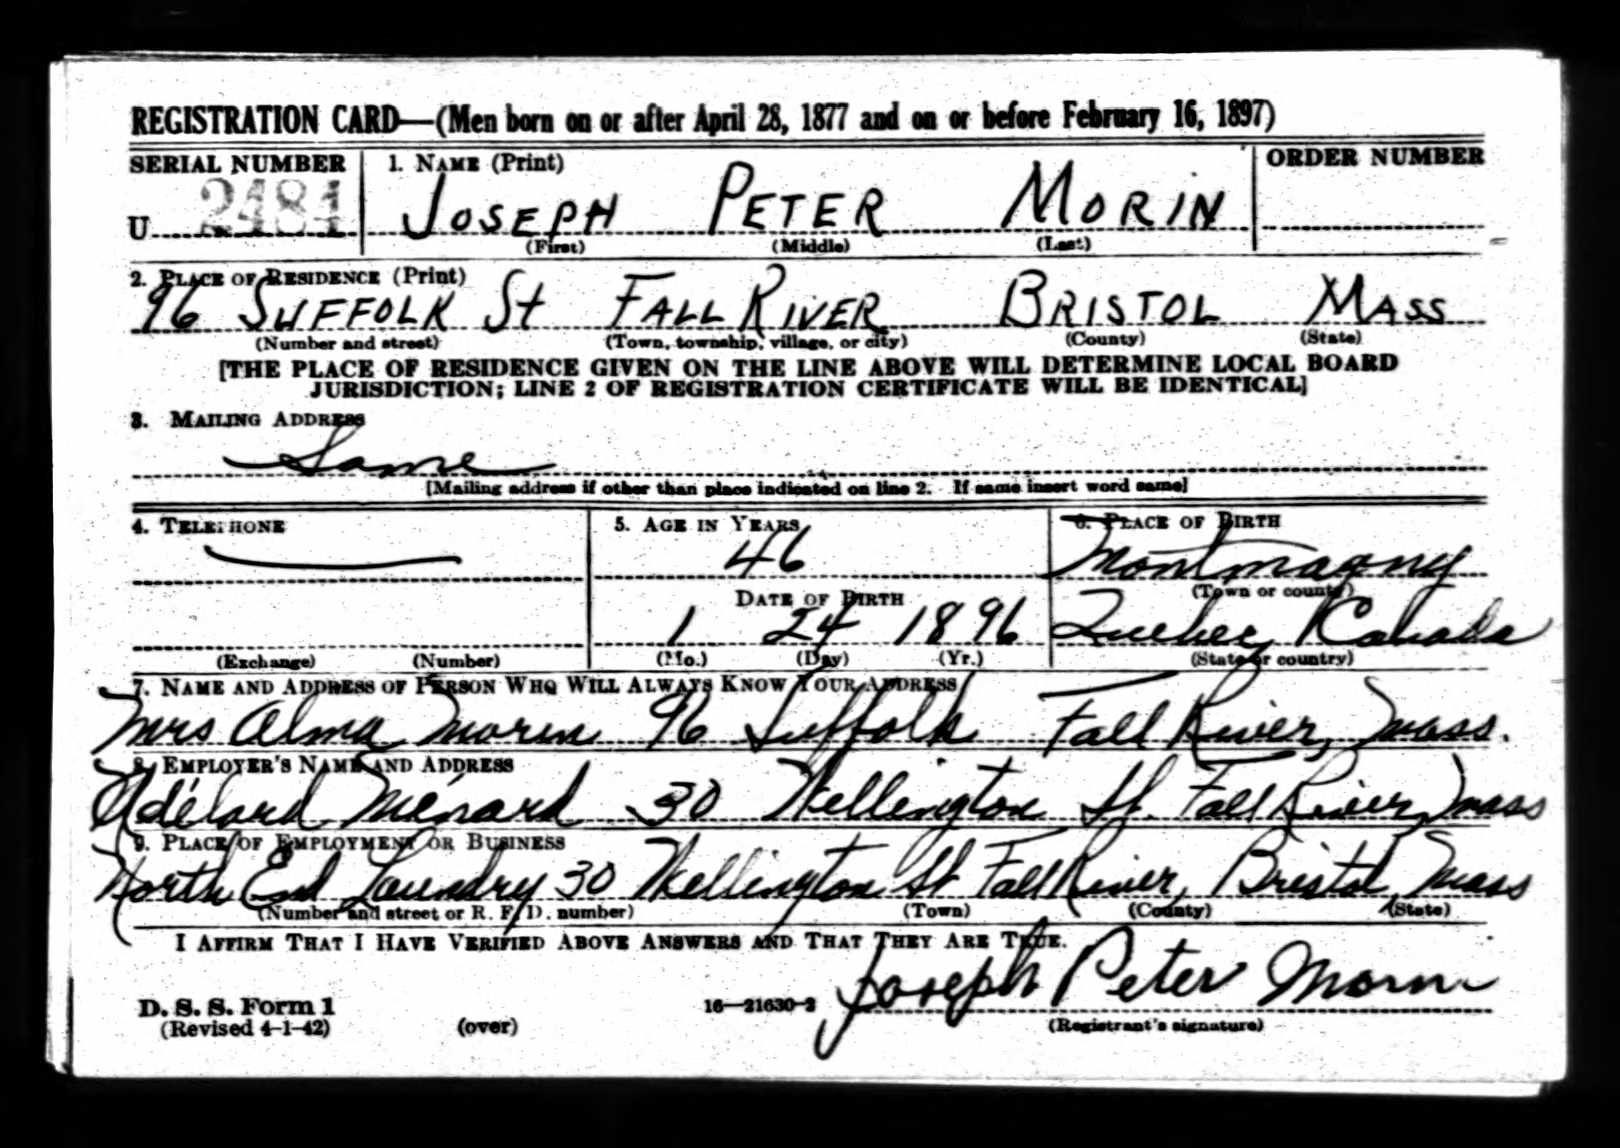 REGISTRATION CARD—(Men born on or after April 28, 1877 and on or before February 16, 1897)
SERIAL NUMBER
1. NAME (Print)
ORDER NUMBER
U 2484
JOSEPH PETER MORIN
(First) (Middle) (Last)
2. PLACE OF RESIDENCE (Print)
96 SUFFOLK St FALL RIVER BRISTOL MASS
(Number and street) (Town, township, village, or city) (County) (State)
[THE PLACE OF RESIDENCE GIVEN ON THE LINE ABOVE WILL DETERMINE LOCAL BOARD
JURISDICTION; LINE 2 OF REGISTRATION CERTIFICATE WILL BE IDENTICAL]
3. MAILING ADDRESS
Same
[Mailing address if other than place indicated on line 2. If same insert word same]
4. TELEPHONE
5. AGE IN YEARS
6. PLACE OF BIRTH
46
Montmagny
(Town or county)
DATE OF BIRTH
1 24 1896
Quebec, Canada
(Exchange) (Number)
(Mo.) (Day) (Yr.)
(State or country)
7. NAME AND ADDRESS OF PERSON WHO WILL ALWAYS KNOW YOUR ADDRESS
Mrs Alma Morin 96 Suffolk Fall River, Mass.
8. EMPLOYER'S NAME AND ADDRESS
Adélard Ménard 30 Wellington St. Fall River, Mass
9. PLACE OF EMPLOYMENT OR BUSINESS
North End Laundry 30 Wellington St Fall River, Bristol, Mass
(Number and street or R. F. D. number) (Town) (County) (State)
I AFFIRM THAT I HAVE VERIFIED ABOVE ANSWERS AND THAT THEY ARE TRUE.
Joseph Peter Morin
D. S. S. Form 1
(Revised 4-1-42) (over) 16—21630-2 (Registrant's signature)